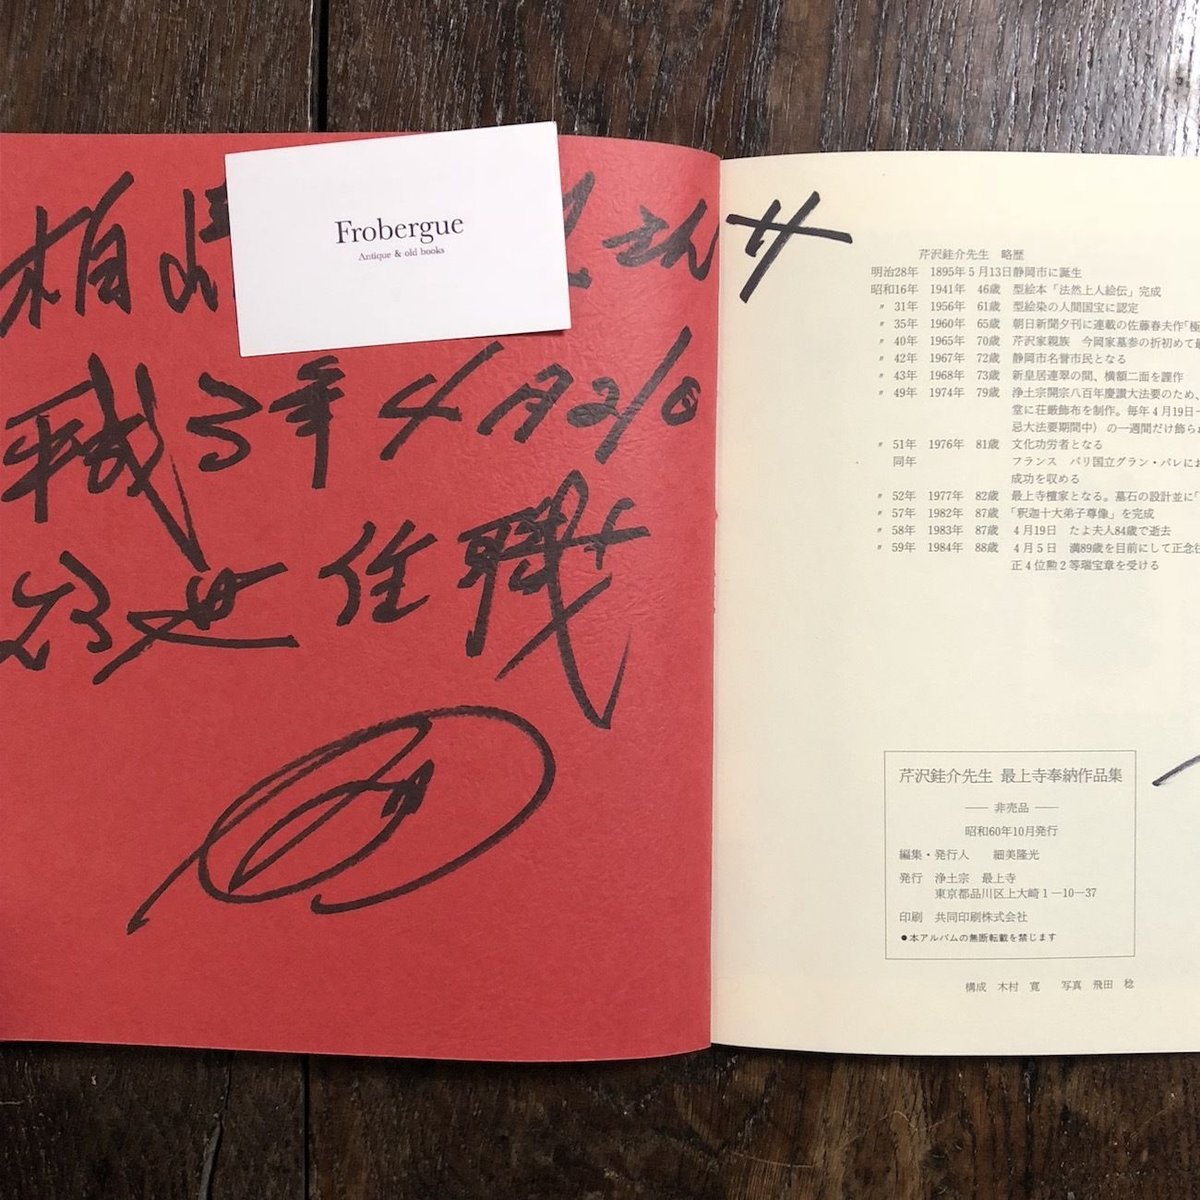 Frobergue
Antique & old books
さん
平成3年4月2/8
任職
芹沢銈介先生 略歴
明治28年 1895年5月13日静岡市に誕生
昭和16年 1941年 46歳 型絵本「法然上人絵伝」完成
〃 31年 1956年 61歳 型絵染の人間国宝に認定
〃 35年 1960年 65歳 朝日新聞夕刊に連載の佐藤春夫作「極
〃 40年 1965年 70歳 芹沢家親族 今岡家墓参の折初めて最
〃 42年 1967年 72歳 静岡市名誉市民となる
〃 43年 1968年 73歳 新皇居連翠の間、横額二面を謹作
〃 49年 1974年 79歳 浄土宗開宗八百年慶讃大法要のため、
堂に荘厳飾布を制作。毎年4月19日
忌大法要期間中)の一週間だけ飾ら
〃 51年 1976年 81歳 文化功労者となる
同年 フランス パリ国立グラン・パレにお
成功を収める
〃 52年 1977年 82歳 最上寺檀家となる。墓石の設計並に「
〃 57年 1982年 87歳 「釈迦十大弟子尊像」を完成
〃 58年 1983年 87歳 4月19日 たよ夫人84歳で逝去
〃 59年 1984年 88歳 4月5日 満89歳を目前にして正念往
正4位勲2等瑞宝章を受ける
芹沢銈介先生 最上寺奉納作品集
── 非売品 ──
昭和60年10月発行
編集・発行人 細美隆光
発行 浄土宗 最上寺
東京都品川区上大崎1−10−37
印刷 共同印刷株式会社
●本アルバムの無断転載を禁じます
構成 木村 寛 写真 飛田 稔